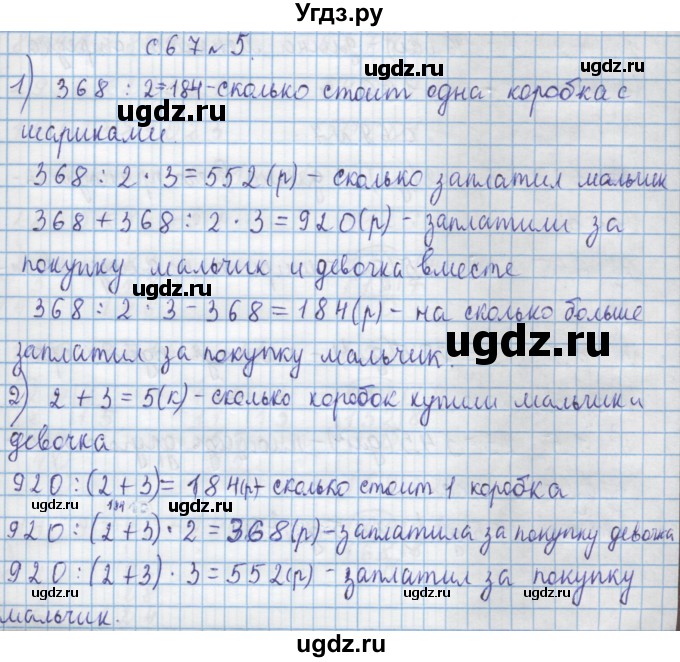 Угдз.ру
с 67 № 5.
1) 368 : 2 = 184 - сколько стоит одна коробка с
шариками.
368 : 2 · 3 = 552 (р) - сколько заплатил мальчик
368 + 368 : 2 · 3 = 920 (р) - заплатили за
покупку мальчик и девочка вместе
368 : 2 · 3 - 368 = 184 (р) - на сколько больше
заплатил за покупку мальчик.
2) 2 + 3 = 5 (к) - сколько коробок купили мальчик и
девочка.
920 : (2 + 3) = 184 (р) - сколько стоит 1 коробка
920 : (2 + 3) · 2 = 368 (р) - заплатила за покупку девочка
920 : (2 + 3) · 3 = 552 (р) - заплатил за покупку
мальчик.
ugdz.ru
ugdz.ru
ugdz.ru
ugdz.ru
ugdz.ru
ugdz.ru
ugdz.ru
ugdz.ru
ugdz.ru
ugdz.ru
ugdz.ru
ugdz.ru
ugdz.ru